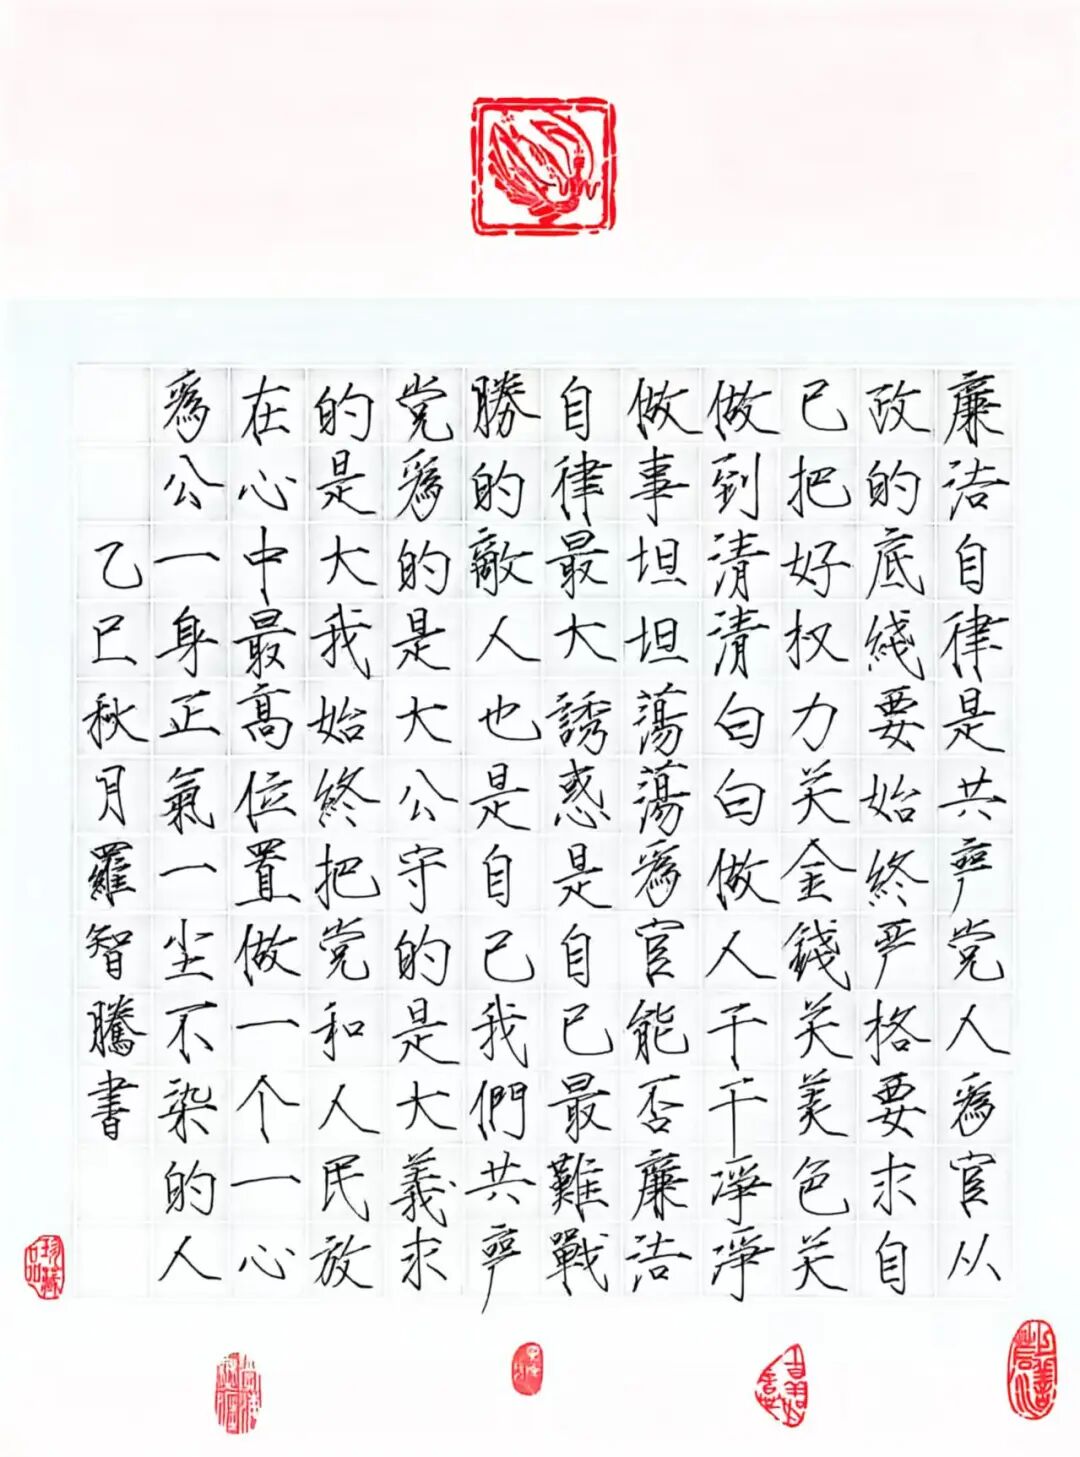 廉洁自律是共產党人爲官从
政的底綫要始終严格要求自
己把好权力关金錢关美色关
做到清清白白做人干干淨淨
做事坦坦蕩蕩爲官能否廉洁
自律最大誘惑是自己最難戰
勝的敵人也是自己我們共產
党爲的是大公守的是大義求
的是大我始終把党和人民放
在心中最高位置做一个一心
爲公一身正氣一尘不染的人
乙巳秋月羅智騰書